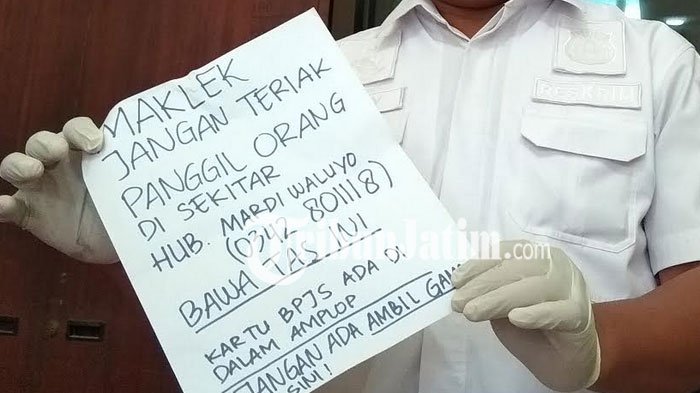 MAKLEK
JANGAN TERIAK
PANGGIL ORANG
DI SEKITAR
HUB. MARDI WALUYO
(0342 801118)
BAWA TAS INI
KARTU BPJS ADA DI
DALAM AMPLOP
JANGAN ADA AMBIL
SINI!
TribunJatim.com
RESKRIM